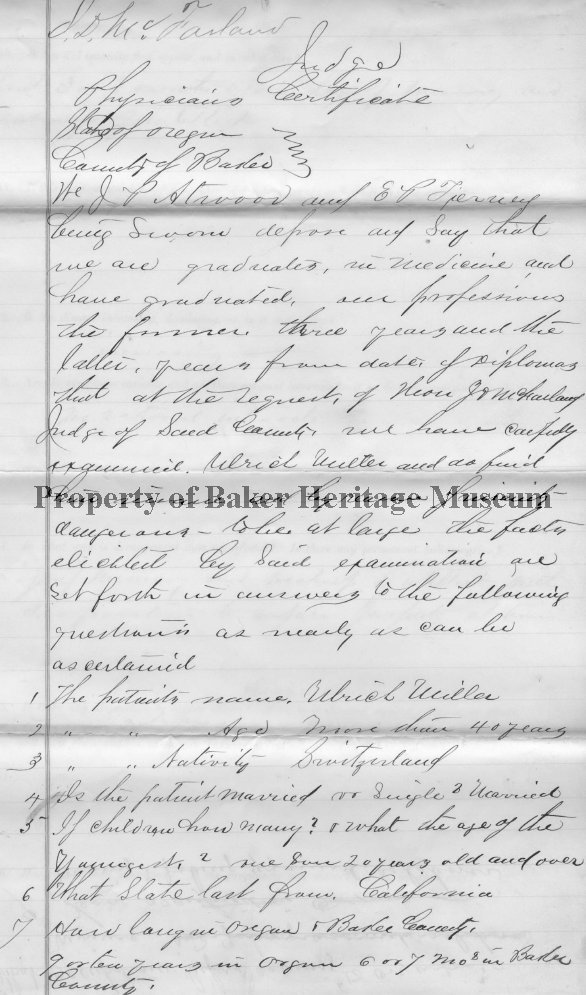 J. D. McFarland
Judge
Physicians Certificate
State of Oregon
County of Baker
We J P Atwood and E P Tierney
being Sworn depose and Say that
we are graduates, in Medicine and
have graduated, our professions
the former three years and the
latter, years from date, of Diplomas
that at the request, of Hon J D McFarland
Judge of Said County, we have carfully
examined. Ulrich Miller and do find
Property of Baker Heritage Museum
dangerous - to be at large the facts
elicited by Said examination are
Set forth in answers to the following
questions as nearly as can be
ascertained
1 The patients name, Ulrich Miller
2 " " Age More than 40 years
3 " " Nativity Switzerland
4 Is the patient Married or Single? Married
5 If children how many? & what the age of the
Youngest? one Son 20 years old and over
6 What State last from, California
7 How long in Oregon & Baker County.
9 or ten years in Oregon 6 or 7 mos in Baker
County.